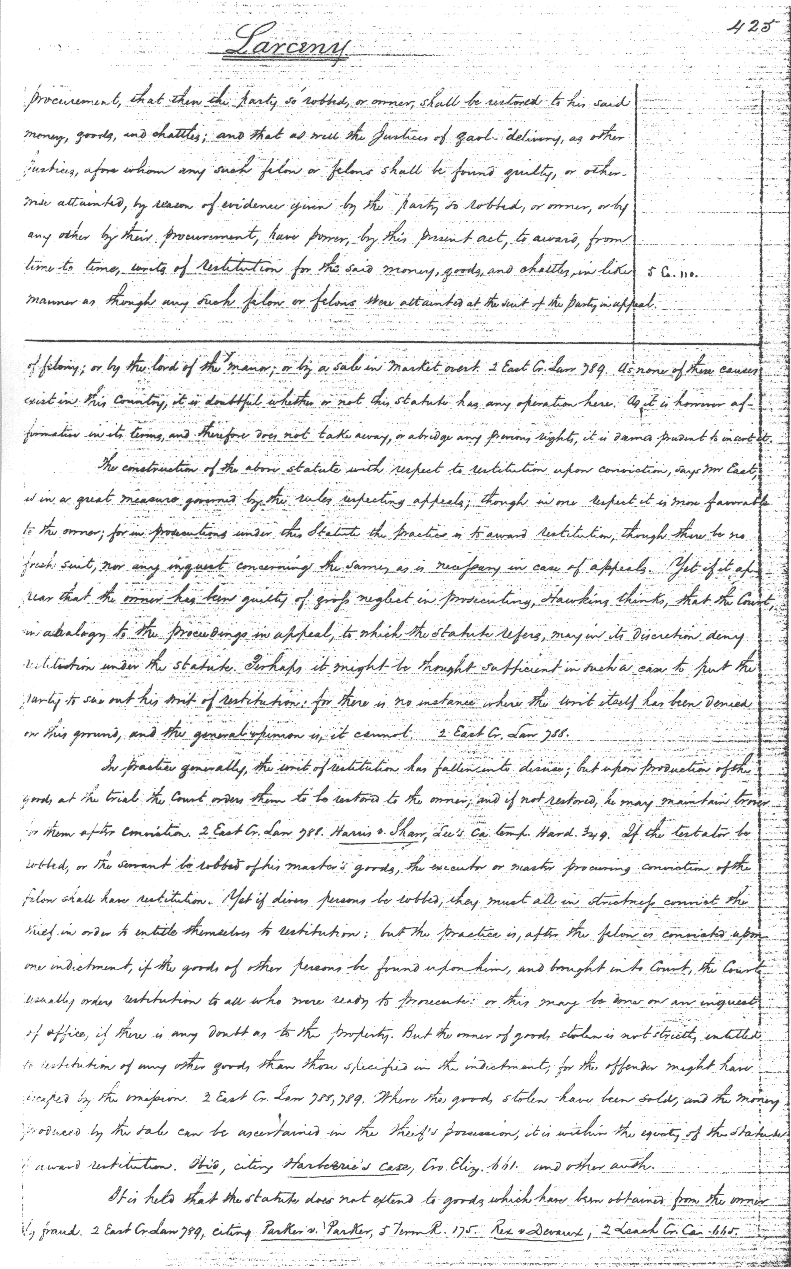 425
Larceny
procurement, that then the party so robbed, or owner, shall be restored to his said
money, goods, and chattles; and that as well the Justices of gaol-delivery, as other
Justices, afore whom any such felon or felons shall be found guilty, or other-
wise attainted, by reason of evidence given by the party so robbed, or owner, or by
any other by their procurement, have power, by this present act, to award, from
time to time, writs of restitution for the said money, goods, and chattles, in like
5 Co. 110.
manner as though any such felon or felons were attainted at the suit of the party in appeal.
of felony; or by the lord of the manor; or by a sale in market overt. 2 East Cr. Law 789. As none of these causes
exist in this Country, it is doubtful whether or not this statute has any operation here. As it is however af-
firmative in its terms, and therefore does not take away, or abridge any previous rights, it is deemed prudent to insert it.
The construction of the above statute with respect to restitution upon conviction, says Mr East,
is in a great measure governed by the rules respecting appeals; though in one respect it is more favorable
to the owner; for in prosecutions under this Statute the practice is to award restitution, though there be no
fresh suit, nor any inquest concerning the same, as is necessary in case of appeals. Yet if it ap-
pear that the owner has been guilty of gross neglect in prosecuting, Hawkins thinks, that the Court,
in analogy to the proceedings in appeal, to which the statute refers, may in its discretion deny
restitution under the statute. Perhaps it might be thought sufficient in such a case to put the
party to sue out his writ of restitution: for there is no instance where the writ itself has been denied
on this ground, and the general opinion is, it cannot. 2 East Cr. Law 788.
In practice generally, the writ of restitution has fallen into disuse; but upon production of the
goods at the trial the Court orders them to be restored to the owner; and if not restored, he may maintain trover
for them after conviction. 2 East Cr. Law 788. Harris v. Shaw, Lee's Ca. temp. Hard. 349. If the testator be
robbed, or the servant be robbed of his master's goods, the executor or master procuring conviction of the
felon shall have restitution. Yet if divers persons be robbed, they must all in strictness convict the
thief in order to entitle themselves to restitution: but the practice is, after the felon is convicted upon
one indictment, if the goods of other persons be found upon him, and brought into Court, the Court
usually orders restitution to all who were ready to prosecute: or this may be done on an inquest
of office, if there is any doubt as to the property. But the owner of goods stolen is not strictly entitled
to restitution of any other goods than those specified in the indictment; for the offender might have
escaped by the omission. 2 East Cr. Law 788, 789. Where the goods stolen have been sold, and the money
produced by the sale can be ascertained in the thief's possession, it is within the equity of the statute
to award restitution. Ibid, citing Harberrie's case, Cro. Eliz. 661. and other auth.
It is held that the statute does not extend to goods which have been obtained from the owner
by fraud. 2 East Cr. Law 789, citing Parker v. Parker, 5 Term R. 175. Rex v Devaux, 2 Leach Cr. Cas.